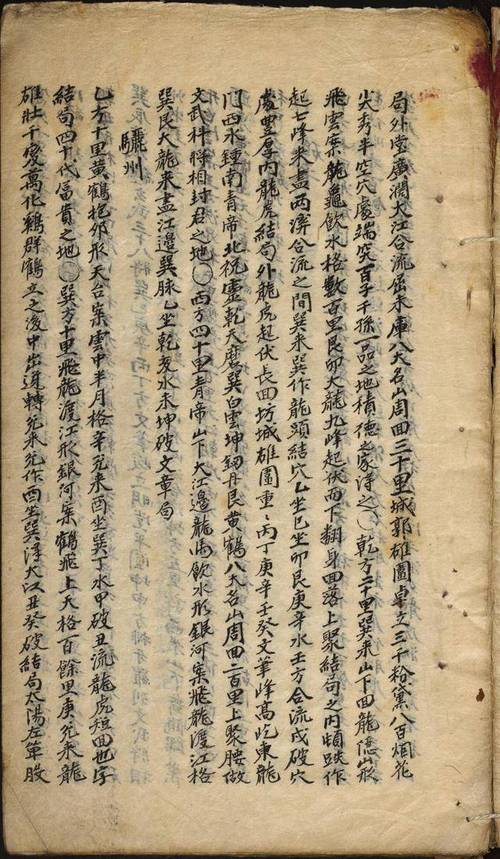 局外堂廣濶大江合流歸未庫八大名山周回三十里城郭雄圖卓立三千粉黛八百烟花
尖秀半空穴處端突百子千孫一品之地積德之家得之〇乾方二十里巽來山下回龍隱山形
飛雲案龍龜飮水格數百里艮卯大龍九峰起伏而下翻身回落上聚結局之內頓跌作
起七峰來盡兩溪合流之間巽來巽作龍頭結穴乙坐巳坐卯艮庚辛水壬方合流戌破穴
處豊厚內龍虎結局外龍虎起伏長回坊城雄圖重〻丙丁庚辛壬癸文筆峰高屹東龍
門西水鍾南靑帝北祝靈乾天磨巽白雲坤釰艮黃鶴八大名山周回二百里上聚腰做
文武科將相封君之地〇西方四十里靑帝山下大江邊龍馬飮水形銀河案飛龍渡江格
巽艮大龍來盡江邊巽脉乙坐乾亥水未坤破文章局
驪州
乙方十里黃鶴抱卵形天台案雲中半月格辛兌來酉坐巽丁水甲破丑流龍虎短回也字
結局四十代富貴之地〇巽方十里飛龍渡江形銀河案鶴飛上天格百餘里庚兌來龍
雄壯千變萬化鷄群鶴立之後中出道轉兌來兌作酉坐巽得大江丑癸破結局太陽左輩股